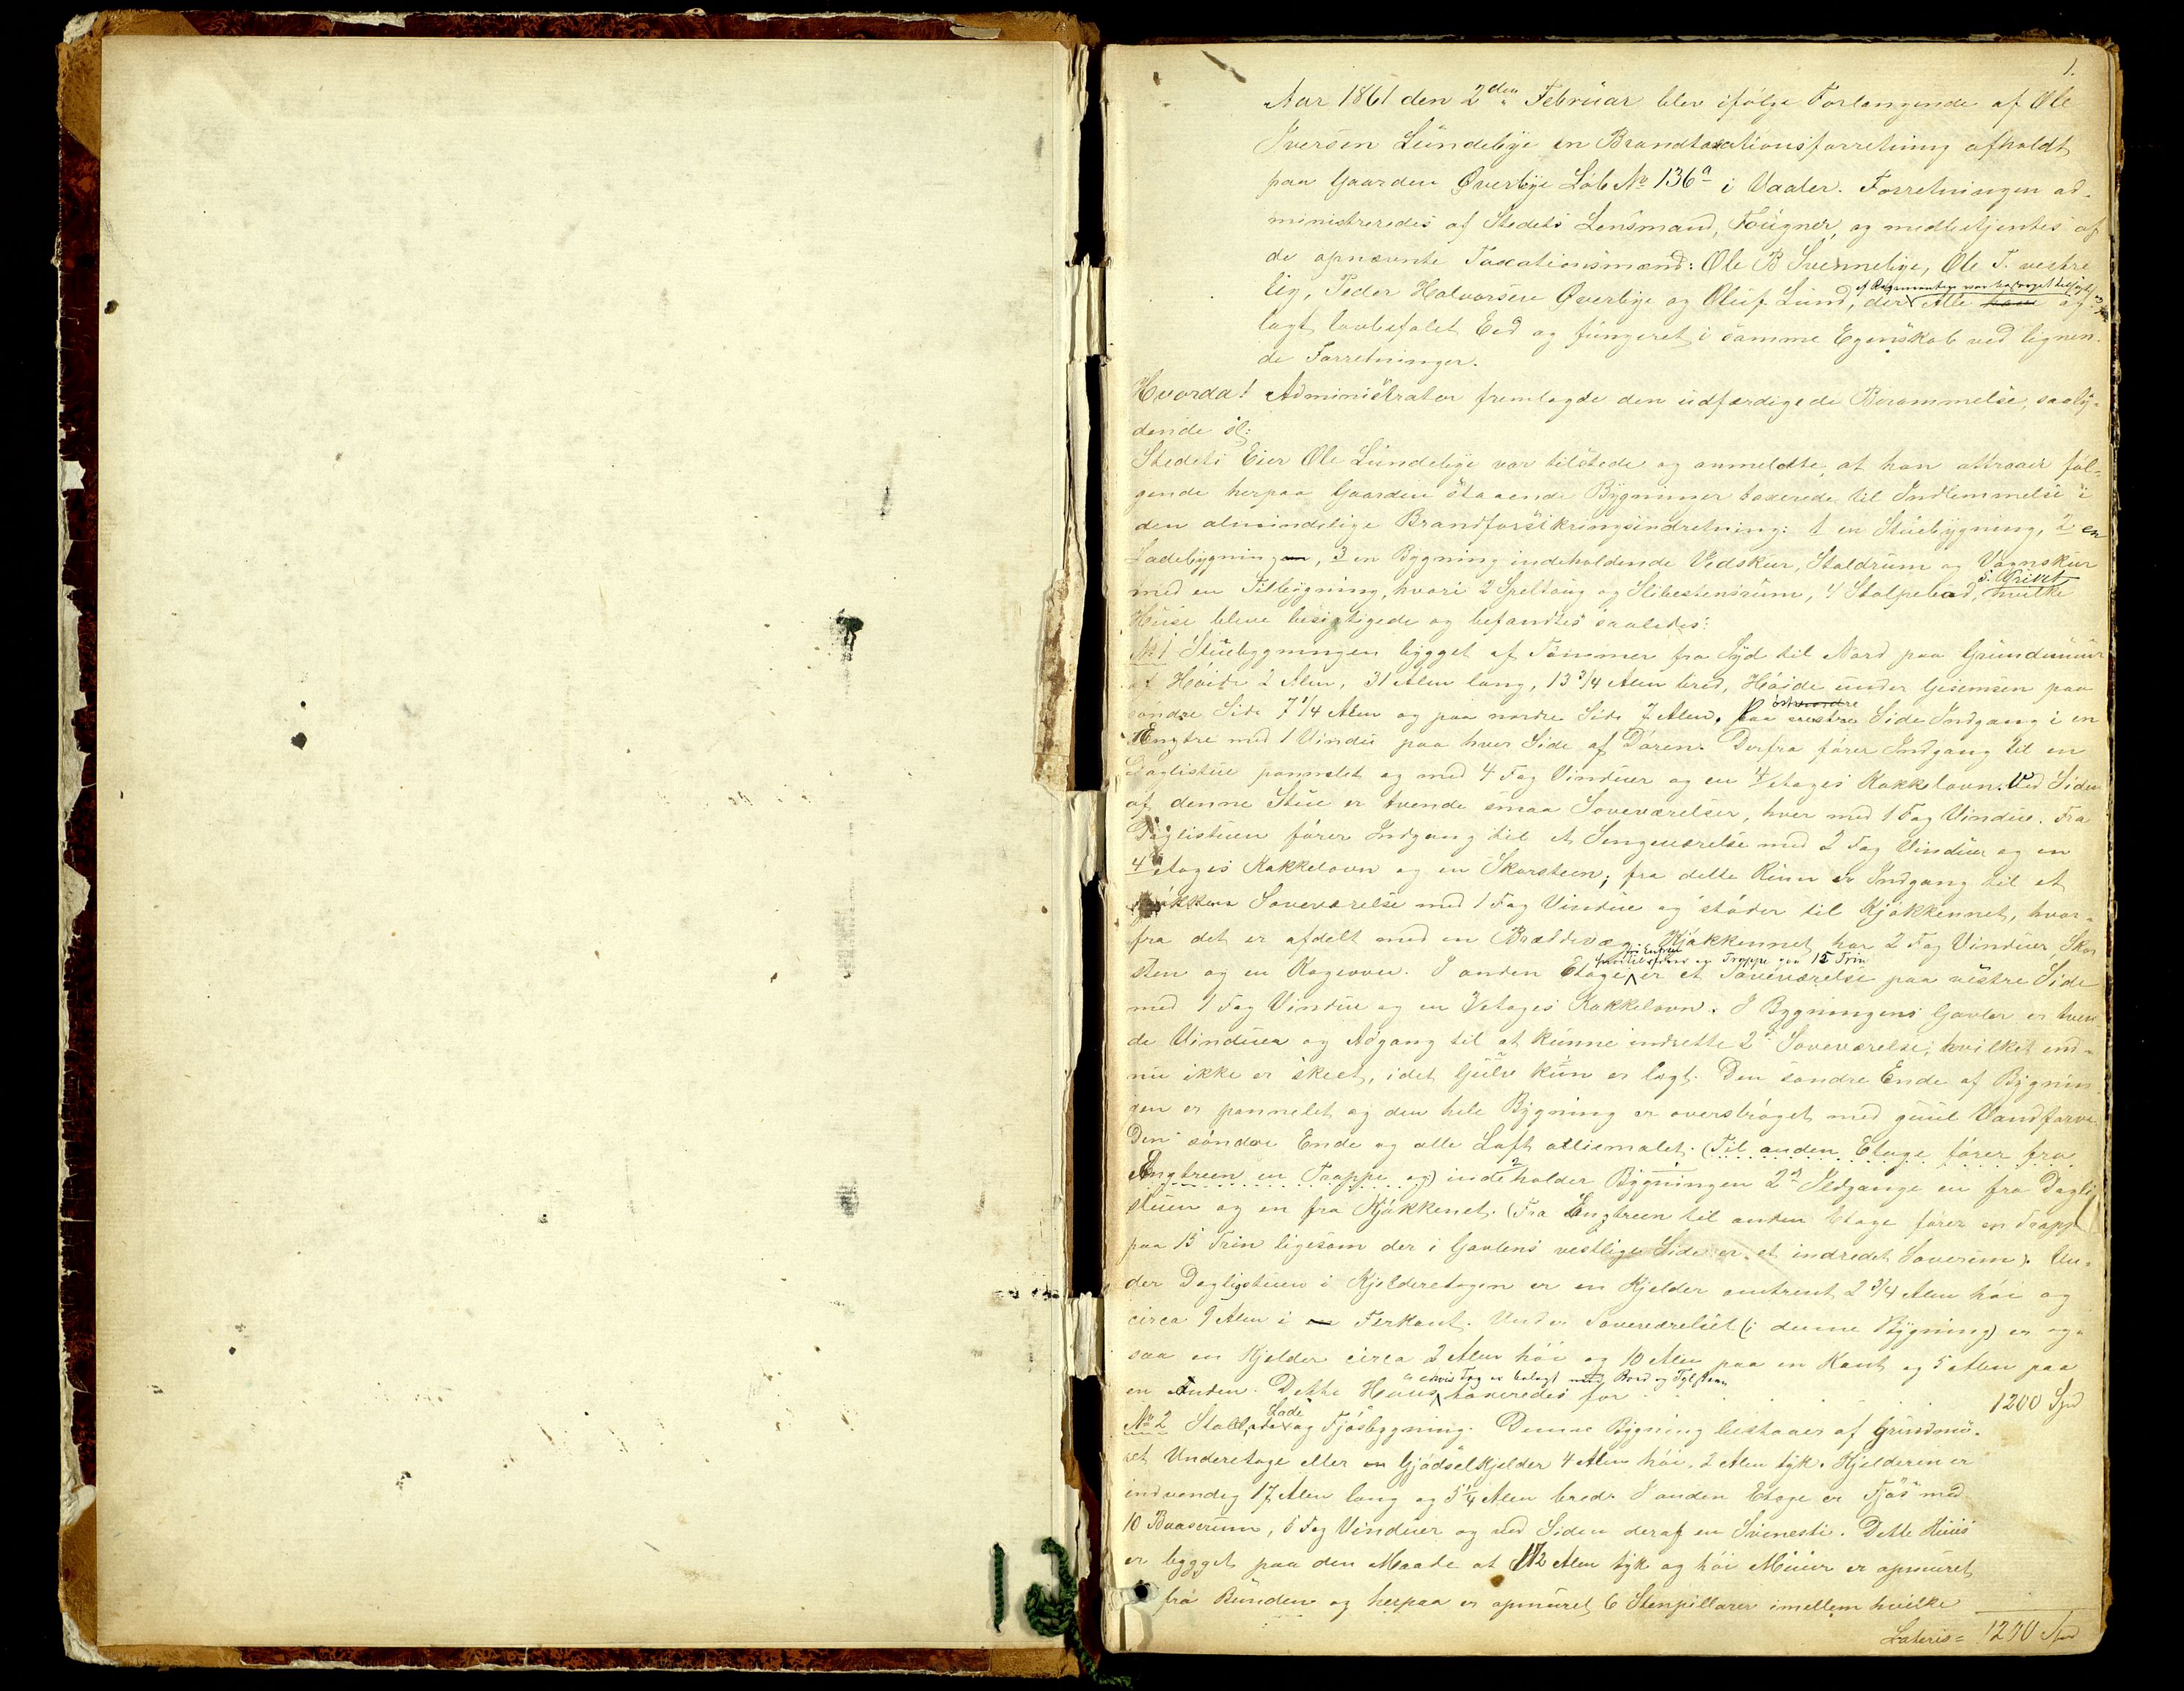 1.
Aar 1861 den 2den Februar blev ifølge Forlangende af Ole
Iversen Lundebye en Brandtaxationsforretning afholdt
paa Gaarden Øverbye Løb No 136a i Vaaler. Forretningen ad-
ministreredes af Stedets Lensmand, Fougner, og medbetjentes af
de opnævnte Taxationsmænd: Ole B Svennebye, Ole T. vestre
bye, Peder Halvorsen Øverbye og Oluf Lund, der Alle have af-
lagt lovbefalet Eed og fungeret i samme Egenskab ved lignen-
de Forretninger.
Hvorda! Administrator fremlagde den udfærdigede Berammelse, saaly-
dende sl:
Stedets Eier Ole Lundebye var tilstede og anmeldte, at han attraaer føl-
gende herpaa Gaarden staaende Bygninger taxerede til Indlemmelse i
den almindelige Brandforsikringsindretning: 1 en Stuebygning, 2 en
Ladebygning, 3 en Bygning indeholdende Vedskur, Staldrum og Vognskur
med en Tilbygning, hvori 2 Speltoug og Slibestensrum, 4 Stolpebod, hvilke
Huse bleve besigtigede og befandtes saaledes:
No 1 Stuebygningen bygget af Tømmer fra Syd til Nord paa Grundmuur
af Høide 2 Alen, 31 Alen lang, 13 3/4 Alen bred, Høide under Gesemsen paa
søndre Side 7 1/4 Alen og paa nordre Side 7 Alen. Paa Side Indgang i en
Engtre med 1 Vindu paa hver Side af Døren. Derfra fører Indgang til en
Daglistue pannelet og med 4 Fag Vinduer og en 4 etages Kakkelovn. Ved Siden
af denne Stue er tvende smaa Soveværelser, hver med 1 Fag Vindue. Fra
Daglistuen fører Indgang til et Sengeværelse med 2 Fag Vinduer og en
4 etages Kakkelovn og en Skorsteen; fra dette Rum er Indgang til et
Soveværelse med 1 Fag Vindue og støder til Kjøkkenet, hvor-
fra det er afdelt med en Bræddevæg. Kjøkkennet har 2 Fag Vinduer Skor
hvortil fører en Trappe paa 15 Trin
sten og en Kogeovn. I anden Etage er et Soveværelse paa vestre Side
med 1 Fag Vindue og en etages Kakkelovn. I Bygningens Gavler er tven
de Vinduer og Adgang til at kunne indrette 2 Soveværelse, hvilket end-
nu ikke er skeet, idet Gulv kun er lagt. Den søndre Ende af Bygnin
gen er pannelet og den hele Bygning er overstrøget med guul Vandfarve
Den søndre Ende og alle Loft oliemalet. (Til anden Etage fører fra
Engtreen en Trappe og) indeholder Bygningen 2 Ildgange en fra Dagli
stuen og en fra Kjøkkenet. (Fra Engtreen til anden Etage fører en Trappe
paa 15 Trin ligesom der i Gavlens vestlige Side er et indredet Soverum). Un-
der Daglistuen i Kjelderetagen er en Kjelder omtrent 2 3/4 Alen høi og
circa 9 Alen i Firkant. Under Soveværelset (i denne Bygning) er og-
saa en Kjelder circa 2 Alen høi og 10 Alen paa en Kant og 5 Alen paa
hvis Tag er belagt med Bord og Tylsteen
en Anden. Dette Huus taxeredes for . . . . 1200 Spd
No 2 Stald, Lade og Fjøsbygning. Denne Bygning bestaaer af Grundmu-
ret Underetage eller Gjødselkjelder 4 Alen høi, 2 Alen tyk. Kjelderen er
indvendig 17 Alen lang og 5 1/4 Alen bred. I anden Etage er Fjøs med
10 Baaserum, 6 Fag Vinduer og ved Siden deraf en Svinesti. Dette Huus
er bygget paa den Maade at 1 1/2 Alen tyk og høi Muur er opmuret
fra Bunden og herpaa er opmuret 6 Stenpillarer imellem hvilke
Lateris = 1200 Spd